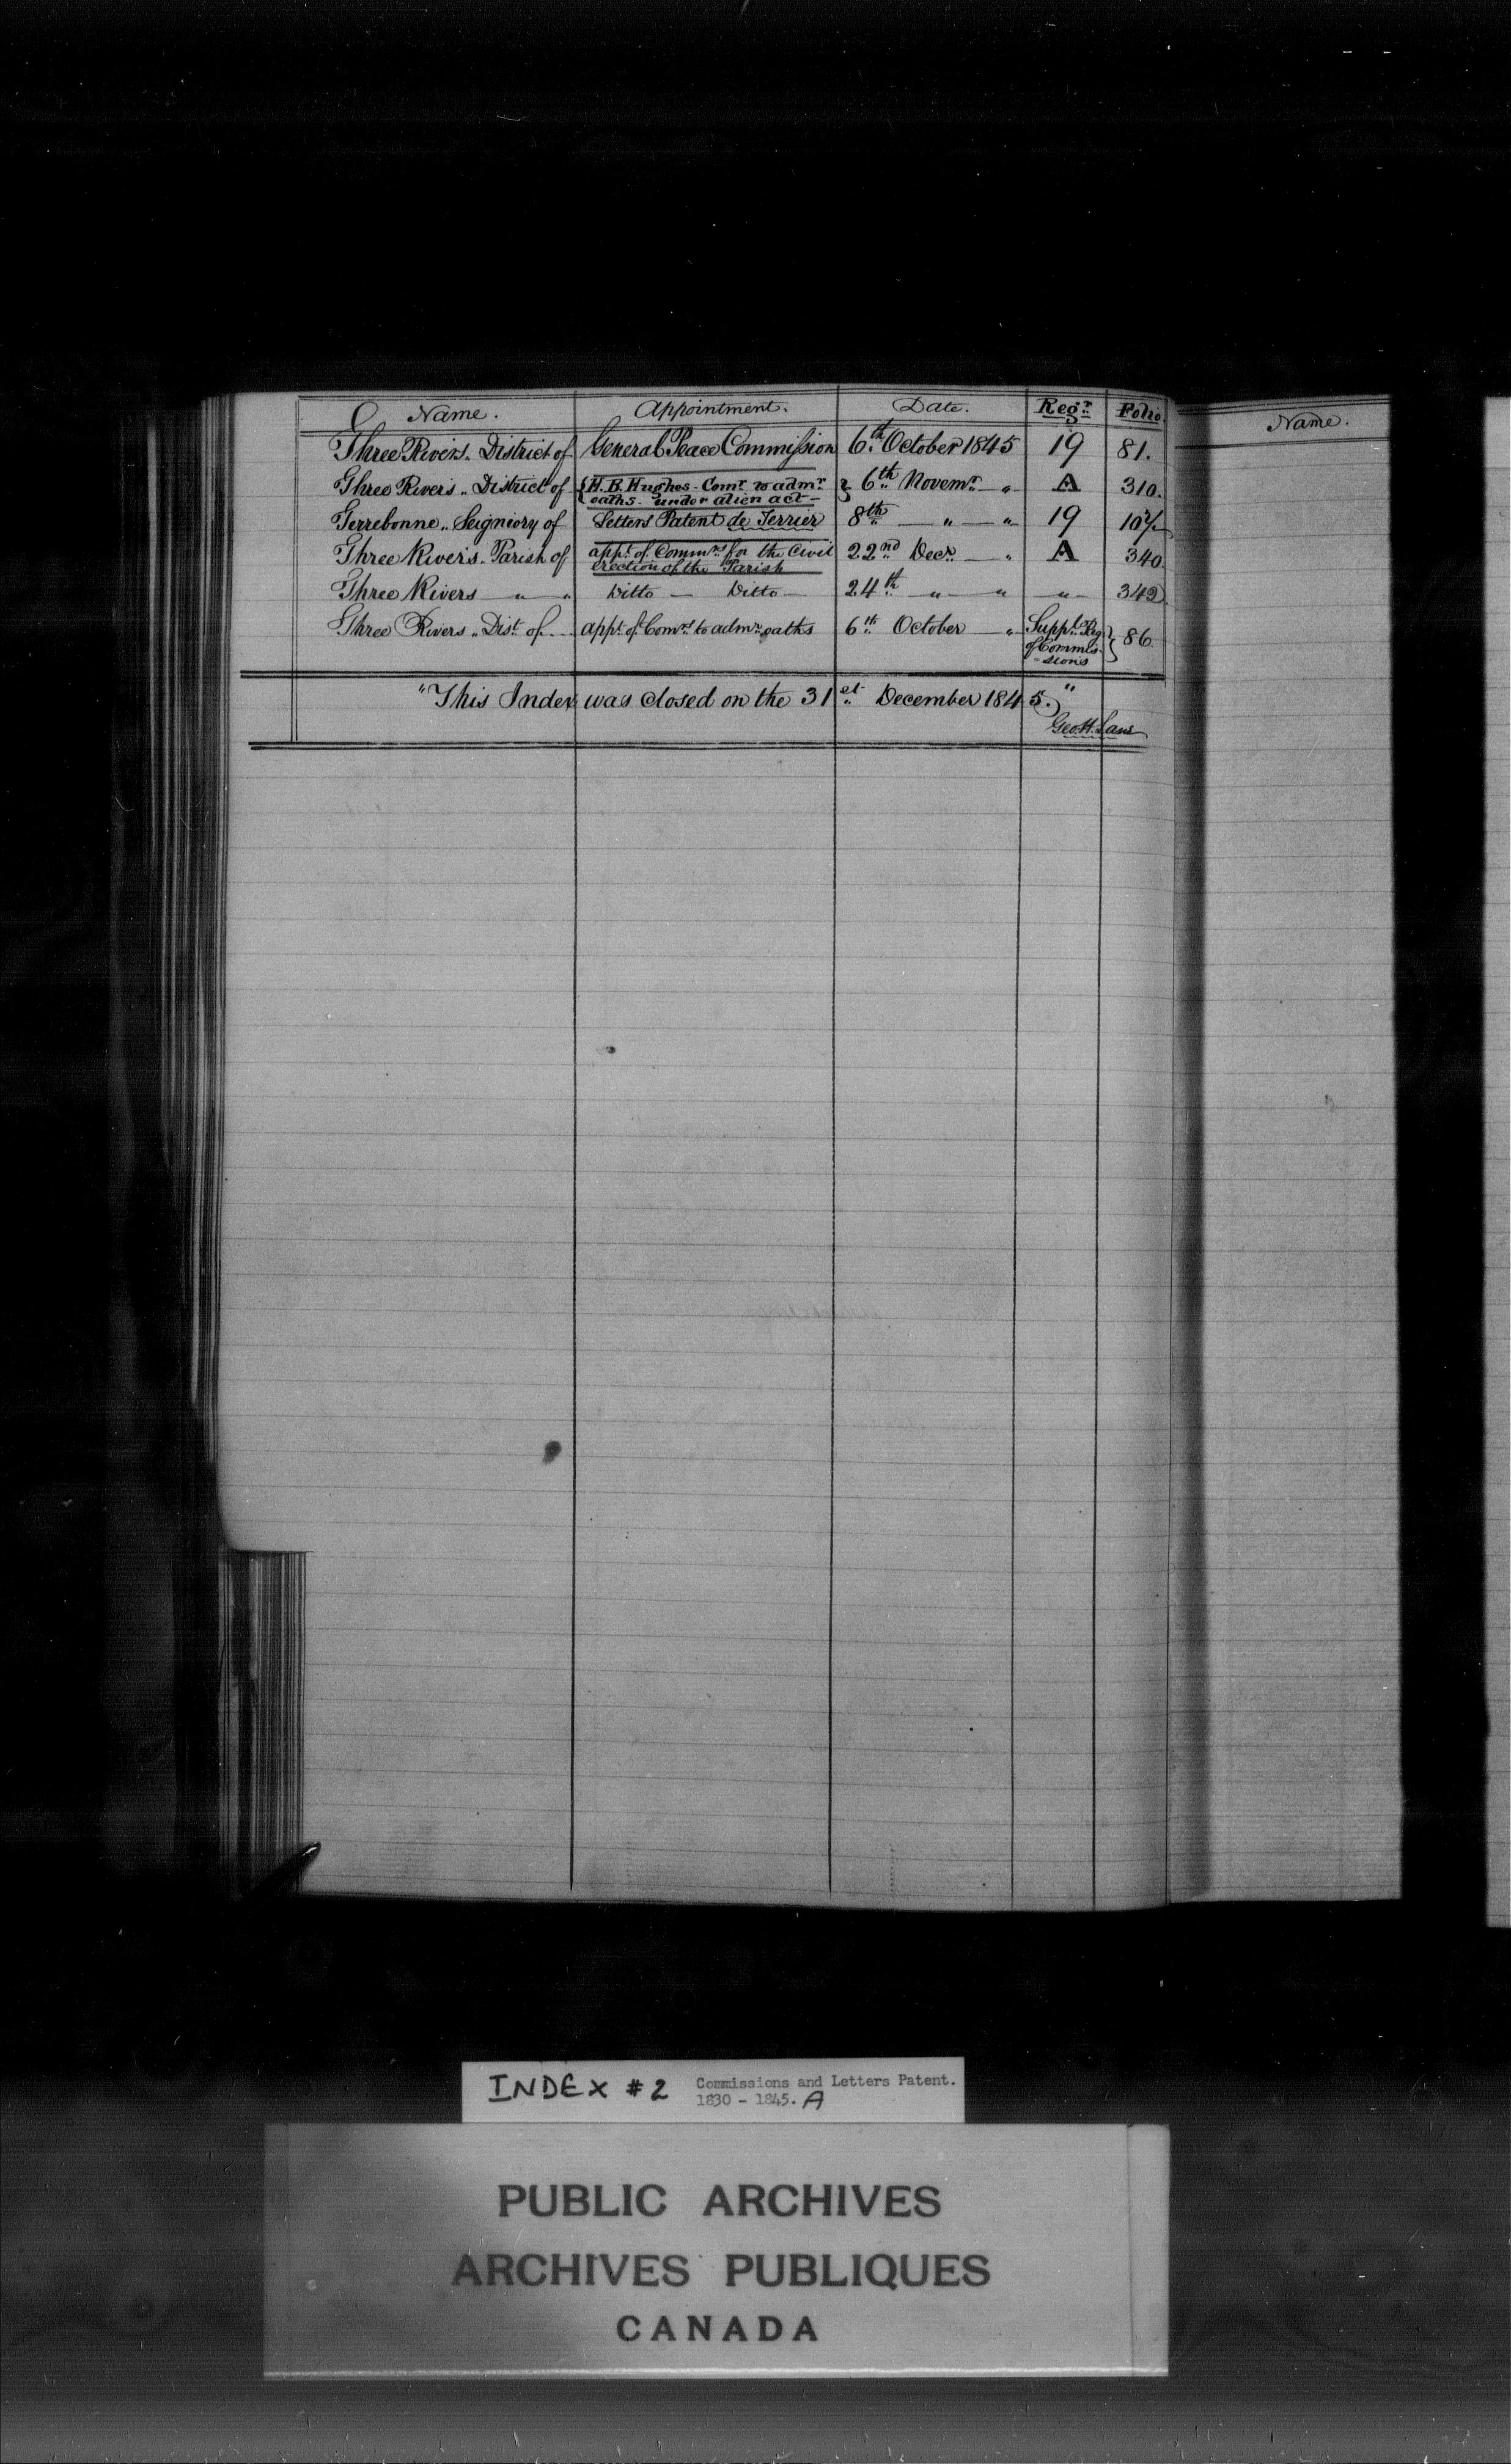 Name. Appointment. Date. Regr. Folio.
Three Rivers. District of General Peace Commission 6th October 1845 19 81.
Three Rivers „ District of { H. B. Hughes - Comr. to admr. oaths - under alien act - } 6th Novemr. — „ A 310.
Terrebonne „ Seigniory of Letters Patent de Terrier 8th — „ — „ 19
Three Rivers. Parish of appt. of Commrs. for the Civil erection of the Parish 22nd Decr. — „ A 340.
Three Rivers — „ — „ Ditto — Ditto — 24th — „ — „ — „ — 342
Three Rivers „ Dist. of — appt. of Comrs. to admr. oaths 6th October — „ Supplt. Reg. of Commis-sions } 86.
"This Index was closed on the 31st December 1845."
Geo. H.
Name.
INDEX #2 Commissions and Letters Patent.
1830 - 1845. A
PUBLIC ARCHIVES
ARCHIVES PUBLIQUES
CANADA